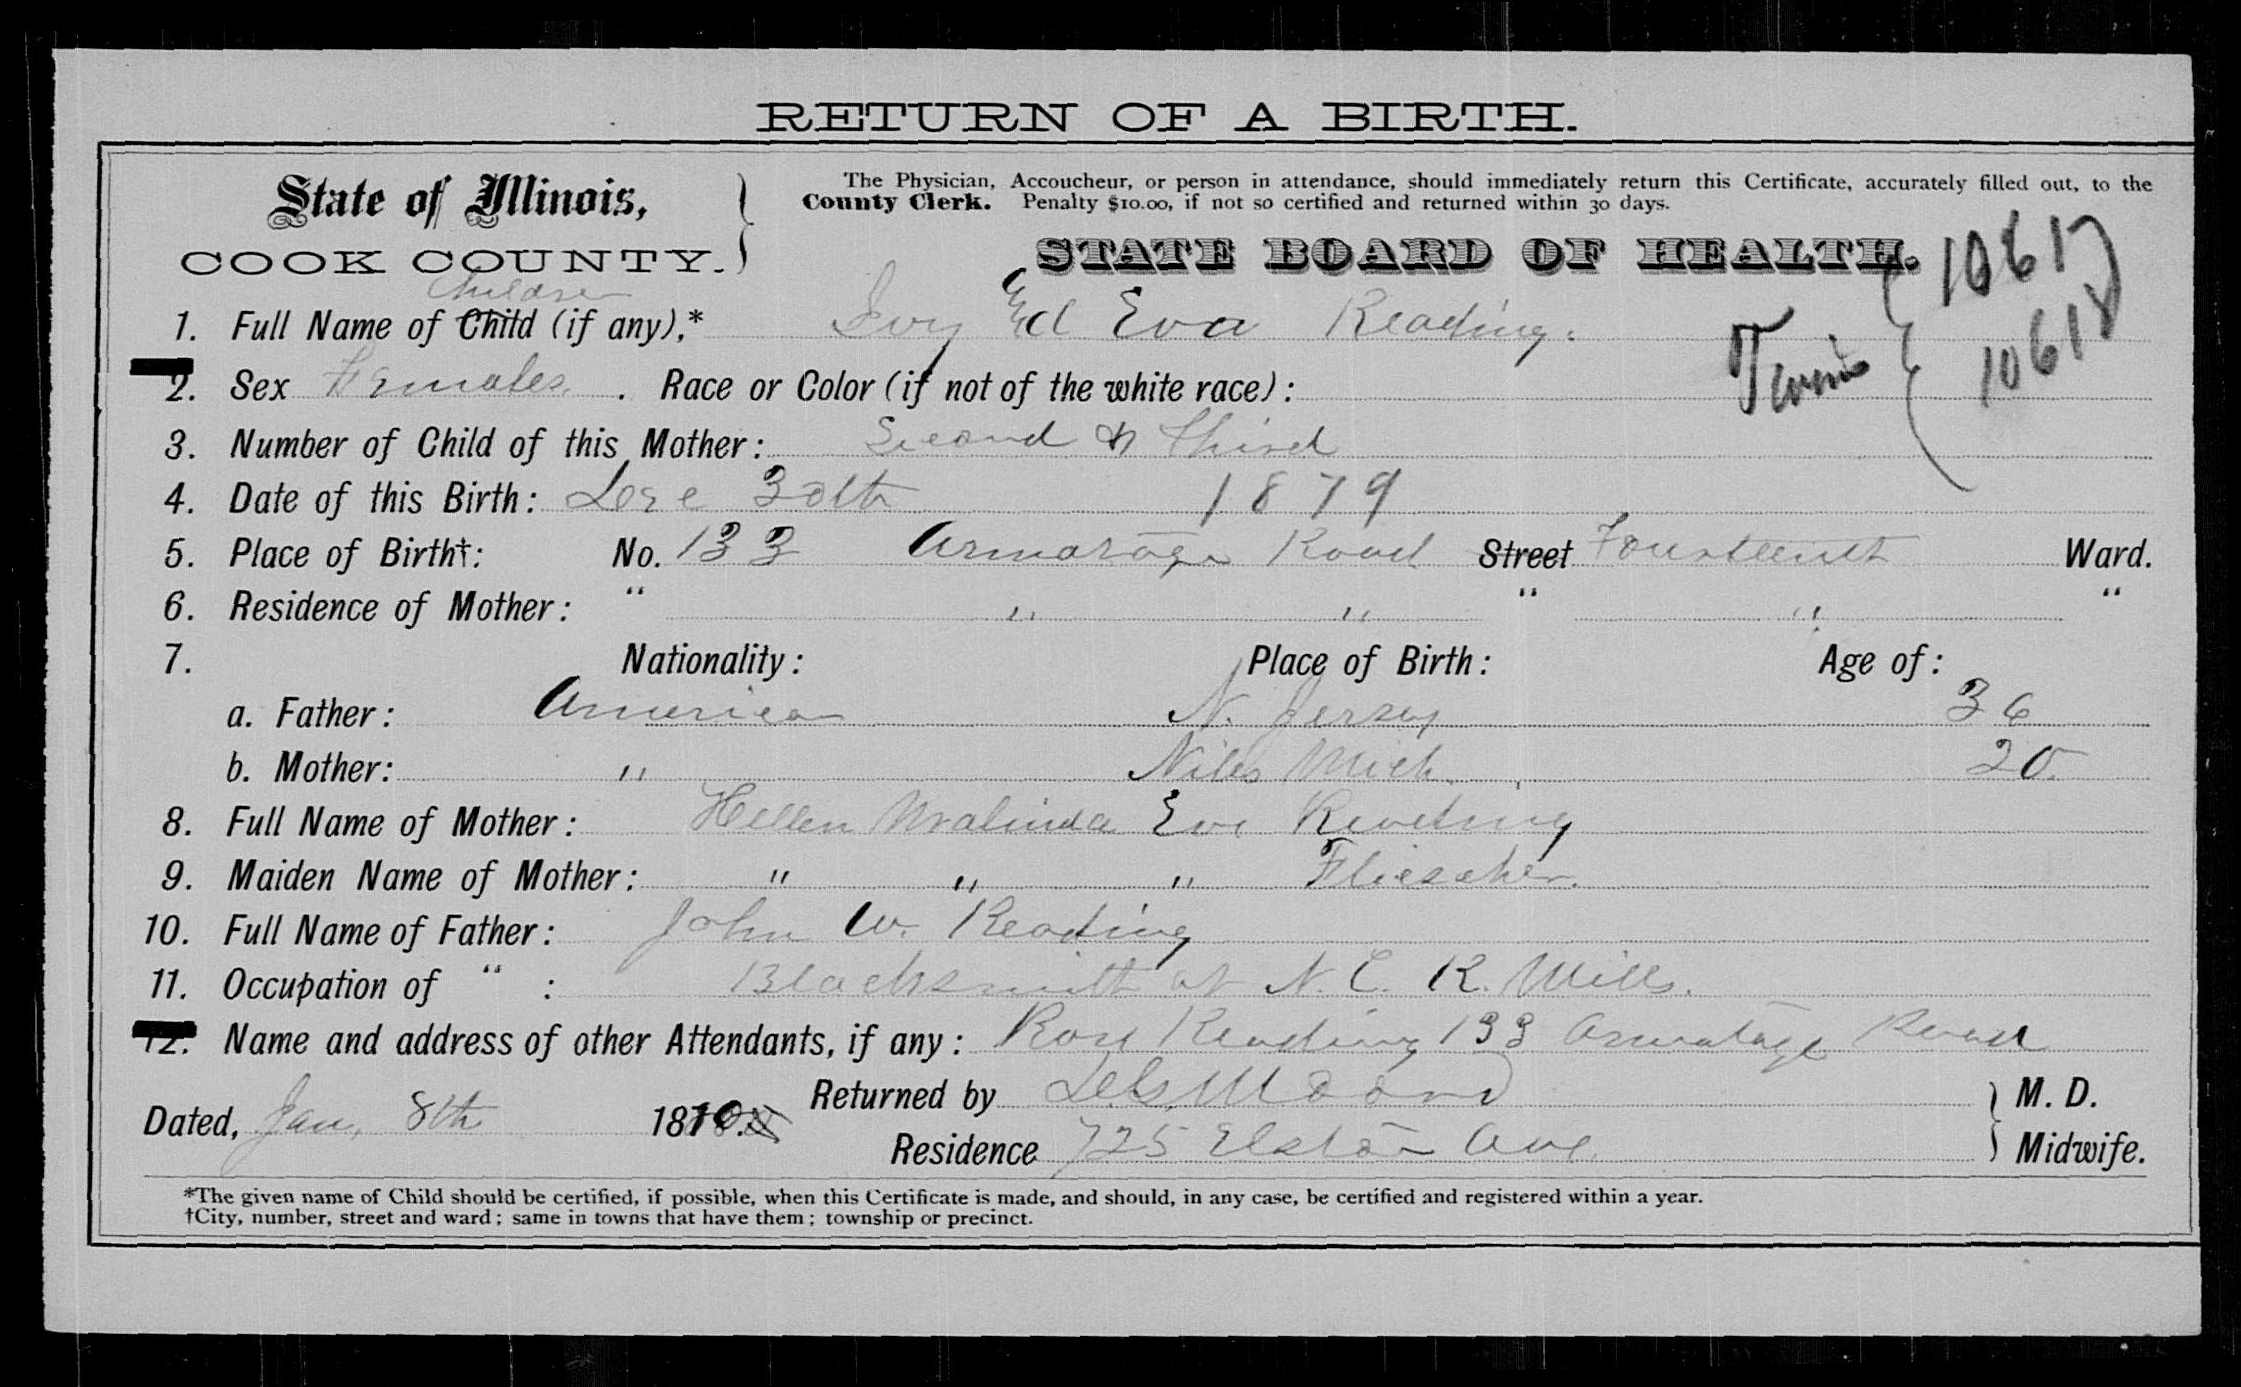 RETURN OF A BIRTH.
State of Illinois,
COOK COUNTY.
The Physician, Accoucheur, or person in attendance, should immediately return this Certificate, accurately filled out, to the
County Clerk. Penalty $10.00, if not so certified and returned within 30 days.
STATE BOARD OF HEALTH.
10617
10618
Twins
Children
1. Full Name of Child (if any),* Ivy Eva Reading.
2. Sex Females. Race or Color (if not of the white race):
3. Number of Child of this Mother: Second & Third
4. Date of this Birth: Dece 30th 1879
5. Place of Birth†: No. 133 Armatage Road Street Fourteenth Ward.
6. Residence of Mother: " " " " " "
7. Nationality: Place of Birth: Age of:
a. Father: American N. Jersey 36
b. Mother: " Niles Mich. 20.
8. Full Name of Mother: Hellen Malinda Eve Reading
9. Maiden Name of Mother: " " " Fliescher.
10. Full Name of Father: John W. Reading
11. Occupation of " : Blacksmith at N. C. R. Mills.
12. Name and address of other Attendants, if any: Rose Reading 133 Armatage Road
Dated, Jan, 8th 18
Returned by
M. D.
Residence 725 Elston Ave.
Midwife.
*The given name of Child should be certified, if possible, when this Certificate is made, and should, in any case, be certified and registered within a year.
†City, number, street and ward; same in towns that have them; township or precinct.